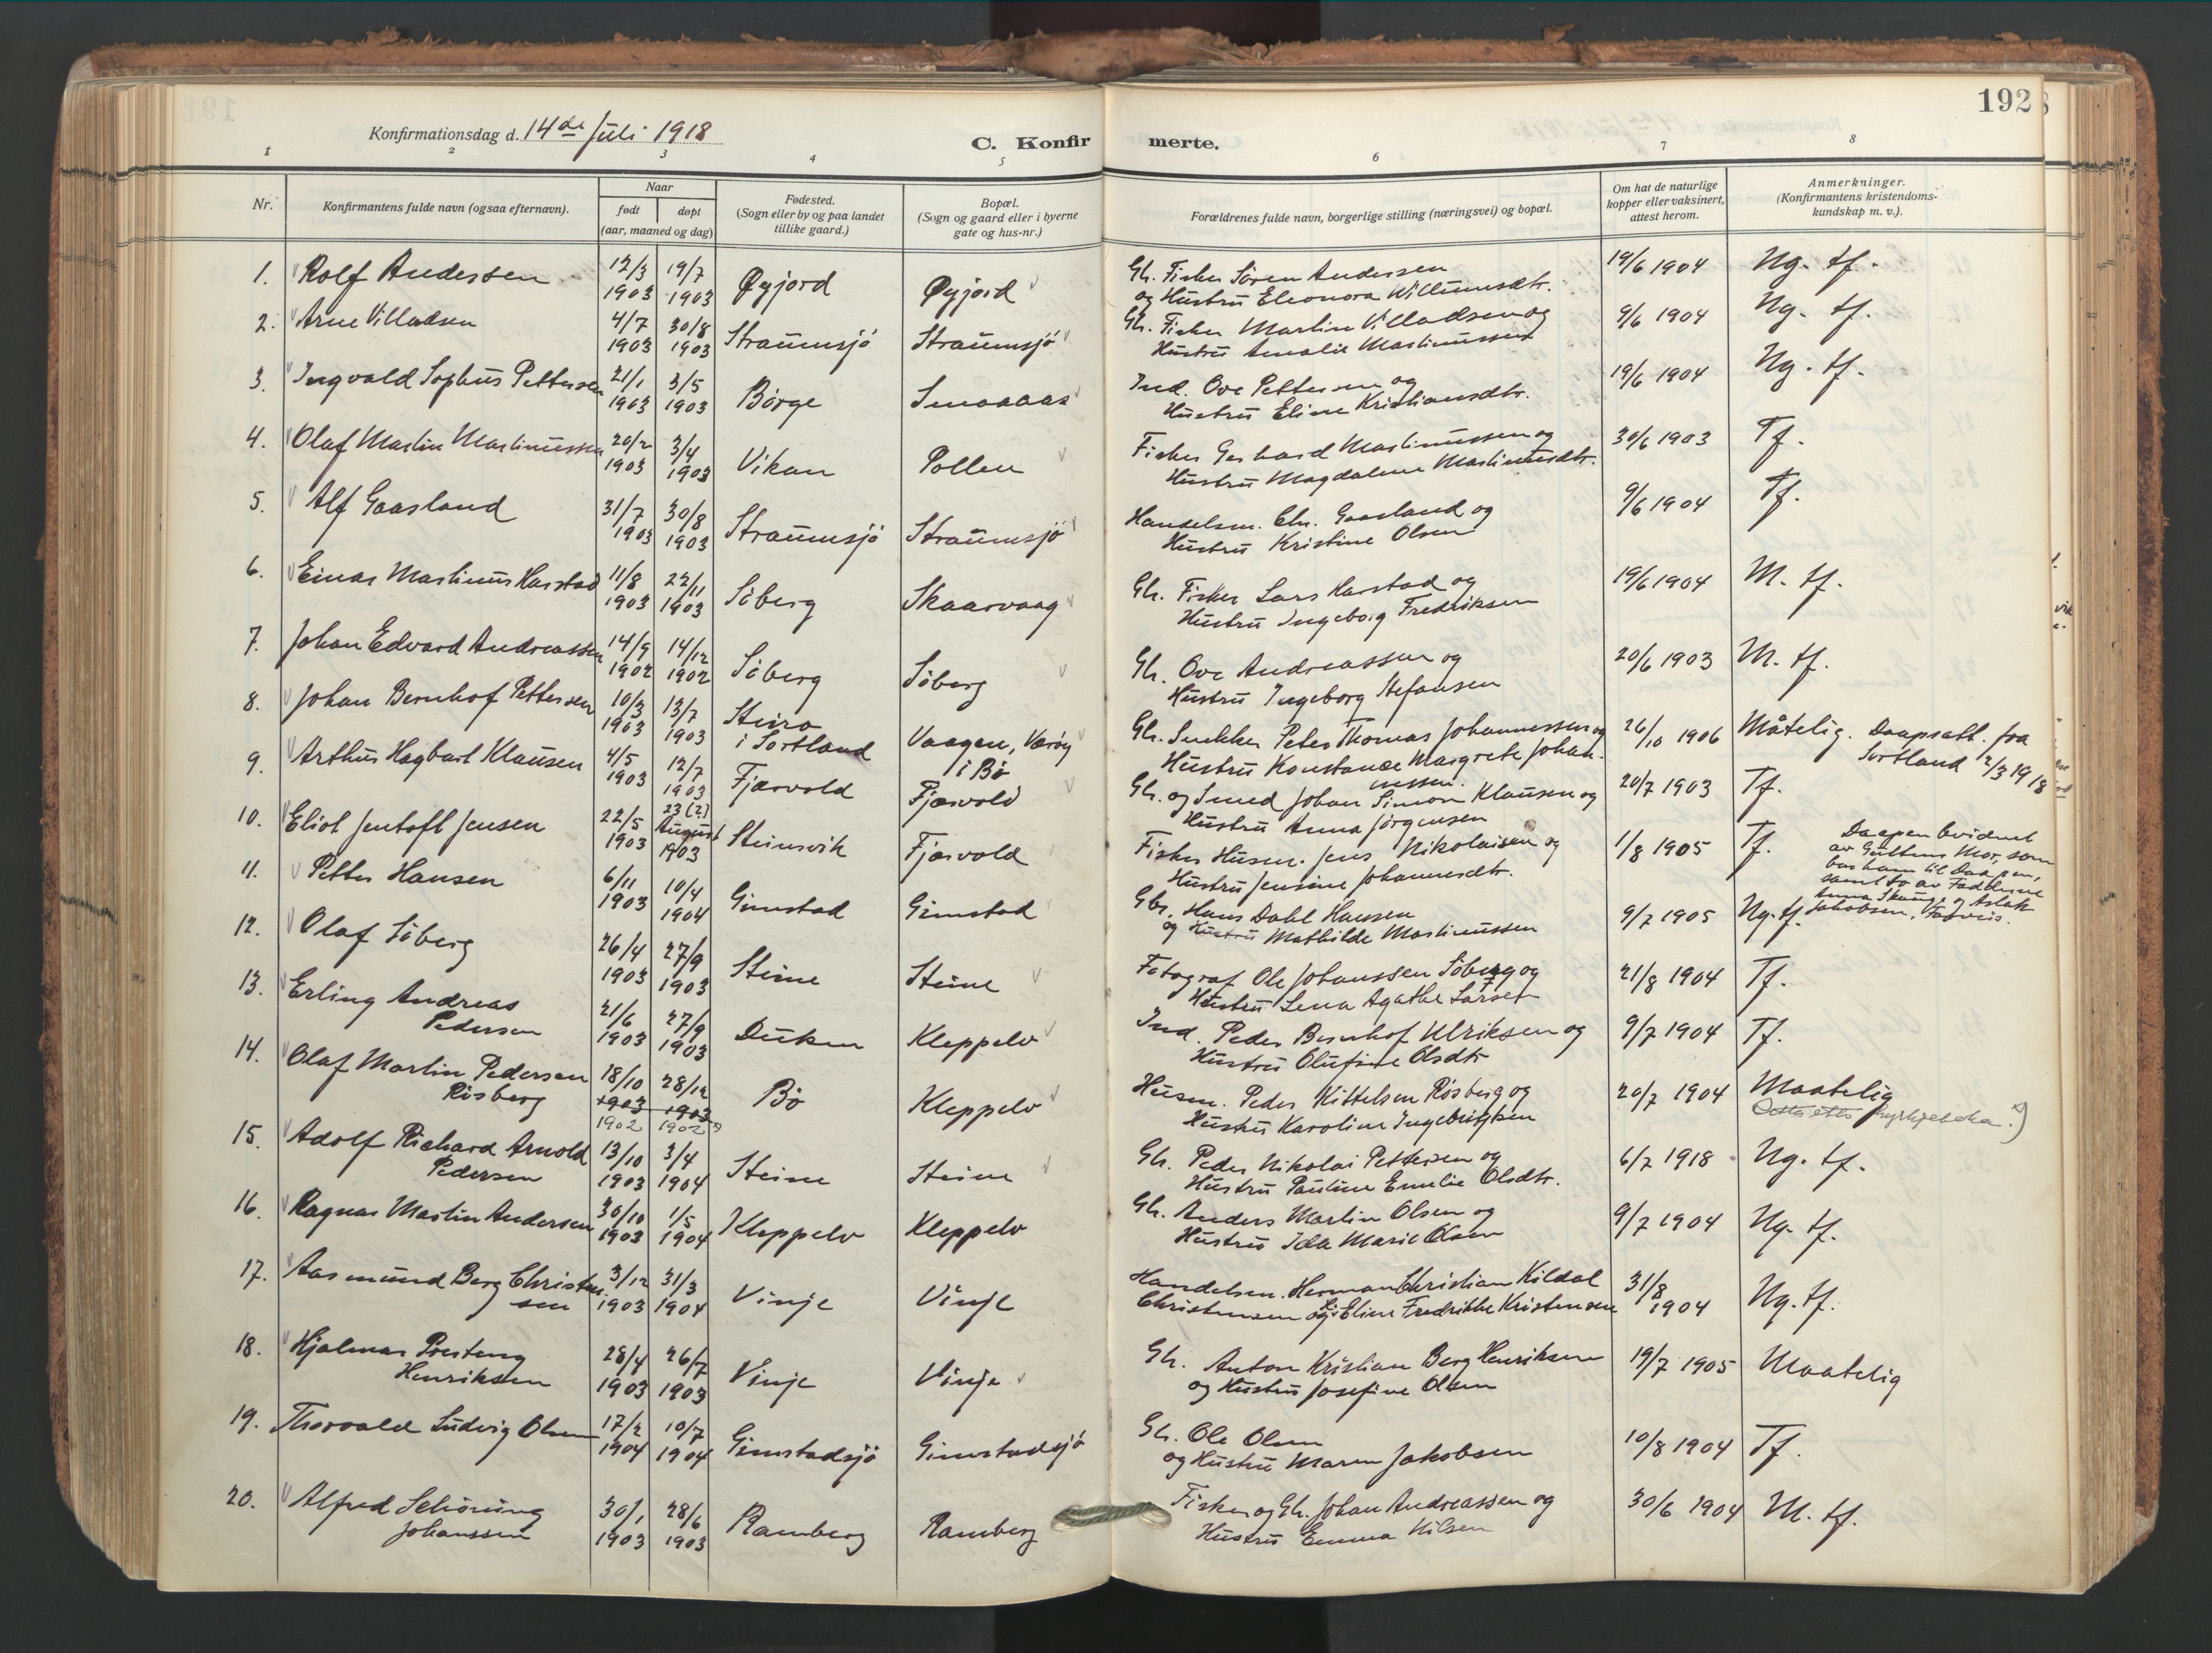 192
Konfirmationsdag d. 14de Juli 1918
C. Konfirmerte.
1 2 3 4 5 6 7 8
Nr.
Konfirmantens fulde navn (ogsaa efternavn).
Naar
født døpt
(aar, maaned og dag)
Fødested.
(Sogn eller by og paa landet
tillike gaard.)
Bopæl.
(Sogn og gaard eller i byerne
gate og hus-nr.)
Forældrenes fulde navn, borgerlige stilling (næringsvei) og bopæl.
Om hat de naturlige
kopper eller vaksinert,
attest herom.
Anmerkninger.
(Konfirmantens kristendoms-
kundskap m. v.).
1. Rolf Andersen 12/3 1903 19/7 1903 Øyjord Øyjord Gb. Fisker Søren Andersen
og Hustru Eleonora Willumsdtr. 19/6 1904 Ng. tf.
2. Arne Villadsen 4/7 1903 30/8 1903 Straumsjö Straumsjö Gb. Fisker Martin Villadsen og
Hustru Amalie Martinussen 9/6 1904 Ng. tf.
3. Ingvald Sophus Pettersen 21/1 1903 3/5 1903 Börge Smaaaas Ind. Ove Pettersen og
Hustru Eline Kristiansdtr. 19/6 1904 Ng. tf.
4. Olaf Martin Martinussen 20/2 1903 3/4 1903 Vikan Pollen Fisker Gerhard Martinussen og
Hustru Magdalene Martinusdtr. 30/6 1903 Tf.
5. Alf Gaasland 31/7 1903 30/8 1903 Straumsjö Straumsjö Handelsm. Chr. Gaasland og
Hustru Kristine Olsen 9/6 1904 Tf.
6. Einar Martinus Harstad 11/8 1903 22/11 1903 Söberg Skaarvaag Gb. Fisker Lars Harstad og
Hustru Ingeborg Fredriksen 19/6 1904 M. tf.
7. Johan Edvard Andreassen 14/9 1902 14/12 1902 Söberg Söberg Gb. Ove Andreassen og
Hustru Ingeborg Stefansen 20/6 1903 M. tf.
8. Johan Bernhof Pettersen 10/3 1903 13/7 1903 Steiro
i Sortland Vaagen, Værøy
i Bö Gb. Snekker Peter Thomas Johannessen og
Hustru Konstanse Margrete Johan-
nessen. 26/10 1906 Måtelig. Daapsatt. fra
Sortland 2/3 1918
9. Arthur Hagbart Klausen 4/5 1903 12/7 1903 Fjærvold Fjærvold Gb. og Smed Johan Simon Klausen og
Hustru Anna Jörgensen 20/7 1903 Tf.
10. Eliot Jentoft Jensen 22/5 1903 23 (?) August 1903 Steinsvik Fjærvold Fisker Husm. Jens Nikolaisen og
Hustru Jensine Johannesdtr. 1/8 1905 Tf. Daapen bevidnet
av Guttens Mor, som
bar ham til Daapen,
samt to av Fadderne
Anna og Aslak
Jakobsen,
11. Petter Hansen 6/11 1903 10/4 1904 Gimstad Gimstad Gbr. Hans Dahl Hansen
og Hustru Mathilde Martinussen 9/7 1905 Ng. tf.
12. Olaf Söberg 26/4 1903 27/9 1903 Steine Steine Fotograf Ole Johanssen Söberg og
Hustru Lena Agathe Larsen 21/8 1904 Tf.
13. Erling Andreas
Pedersen 21/6 1903 27/9 1903 Duken Kleppelv Ind. Peder Bernhof Ulriksen og
Hustru Olufine Olsdtr 9/7 1904 Tf.
14. Olaf Martin Pedersen
Risberg 18/10 1903 1902 28/12 1903 1902 Bö Kleppelv Husm. Peder Kittelsen Risberg og
Hustru Karoline Ingebrigtsen 20/7 1904 Maatelig
Retta etter kyrkjeboka.
15. Adolf Richard Arnold
Pedersen 13/10 1903 3/4 1904 Steine Steine Gb. Peder Nikolai Pettersen og
Hustru Pauline Emelie Olsdtr. 6/7 1918 Ng. tf.
16. Ragnar Martin Andersen 30/10 1903 1/5 1904 Kleppelv Kleppelv Gb. Anders Martin Olsen og
Hustru Ida Marie Olsen 9/7 1904 Ng. tf.
17. Aasmund Berg Christen-
sen 3/12 1903 31/3 1904 Vinje Vinje Handelsm. Herman Christian Kildal
Christensen og Eline Fredrikke Kristensen 31/8 1904 Ng. tf.
18. Hjalmar Presteng
Henriksen 28/4 1903 26/7 1903 Vinje Vinje Gb. Anton Kristian Berg Henriksen
og Hustru Josefine Olsen 19/7 1905 Maatelig
19. Thorvald Ludvig Olsen 17/2 1904 10/7 1904 Gimstadsjö Gimstadsjö Gb. Ole Olsen
og Hustru Maren Jakobsen 10/8 1904 Tf.
20. Alfred Schöning
Johanssen 30/1 1903 28/6 1903 Ramberg Ramberg Fisker og Gb. Johan Andreassen og
Hustru Emma Nilsen 30/6 1904 M. tf.